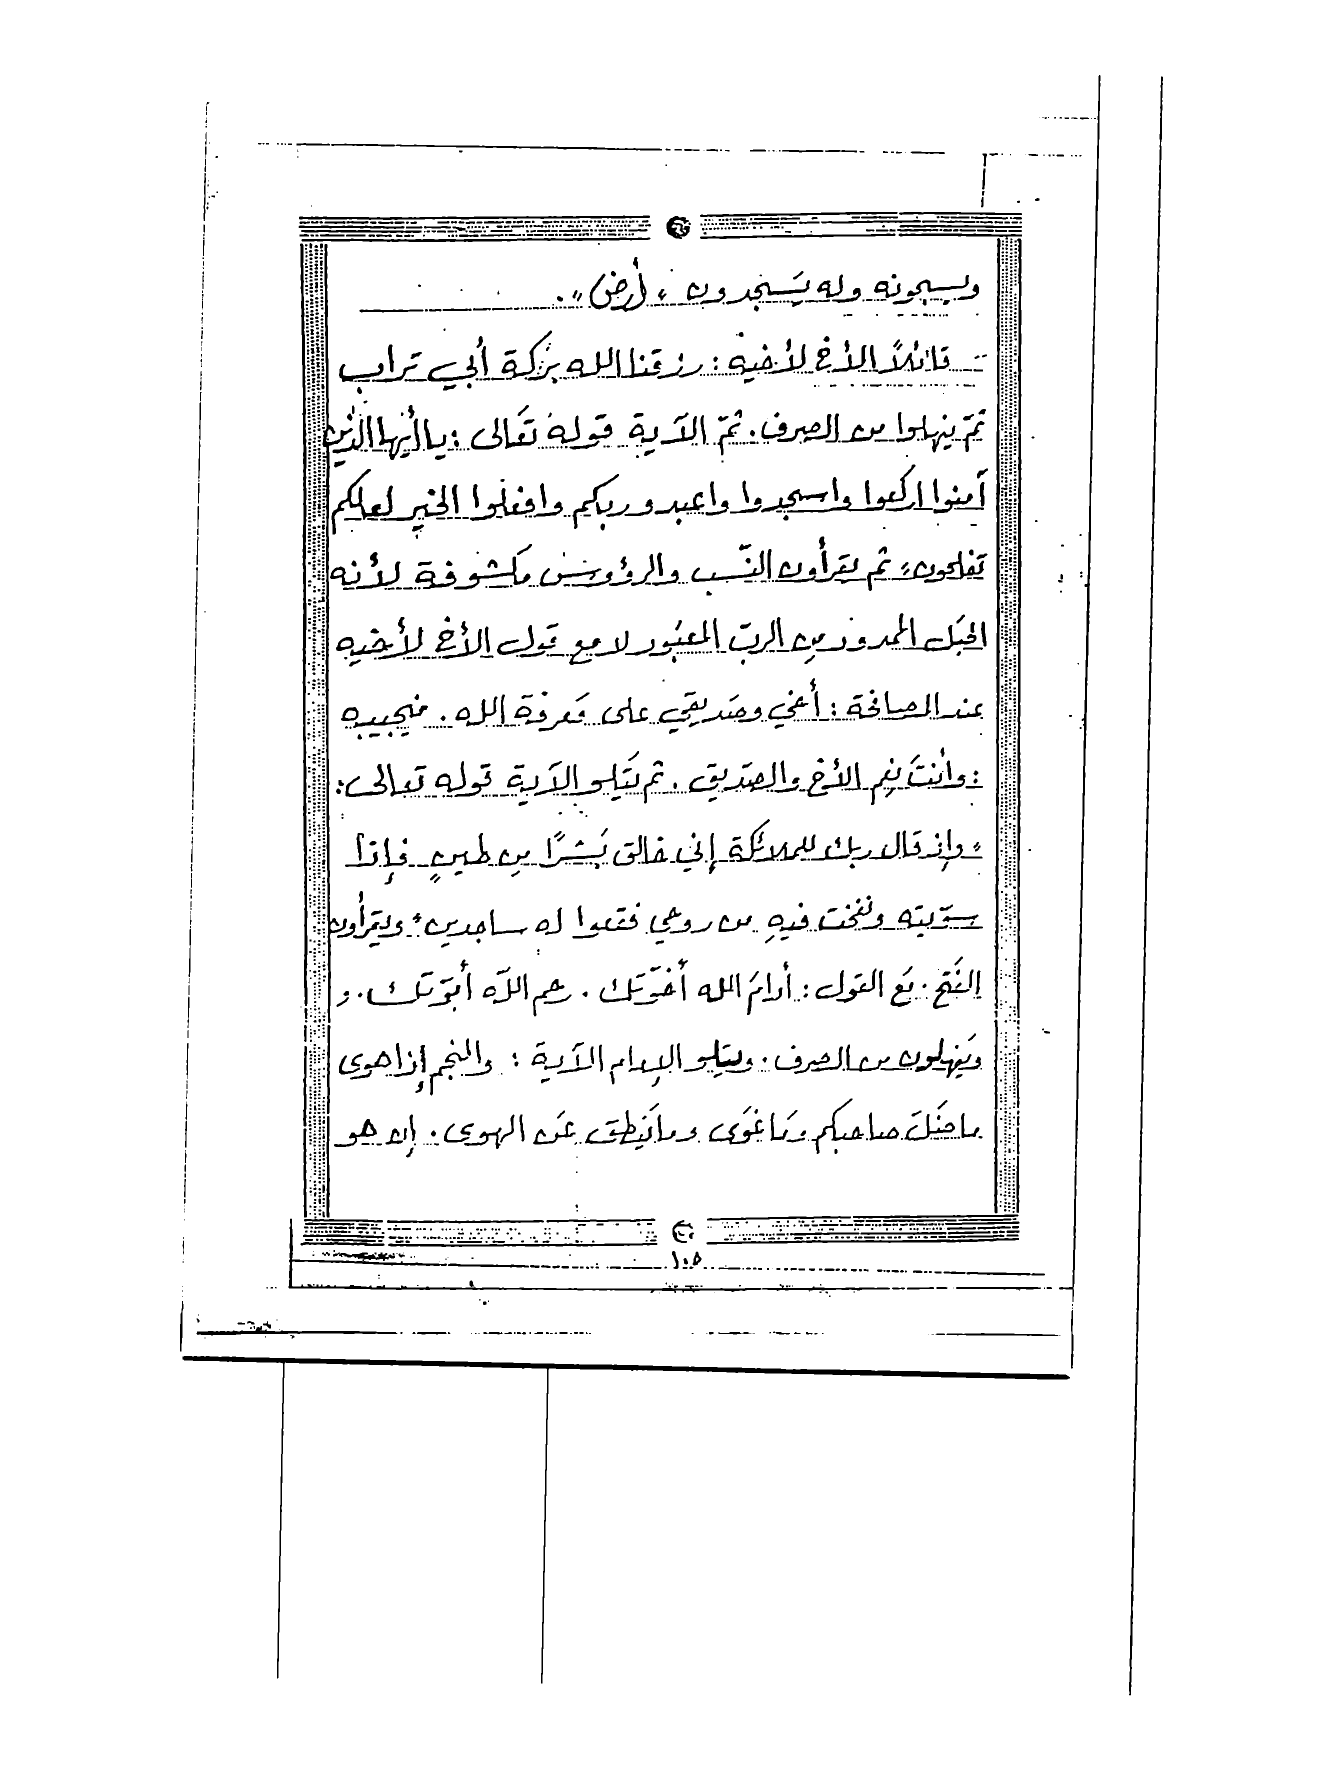 ويسبحونه وله يَسجدون " (أرض) " .
- قائلاً الأخ لأخيه : رزقنا الله بَركة أبي تراب
ثمّ ينهلوا من الصرف . ثمّ الآية قوله تَعَالى : يا أيها الذين
آمنوا اركعوا واسجدوا واعبدو ربكم وافعلوا الخير لعلكم
تفلحون " ثم يقرأون النّسب والرؤوس مكشوفة لأنه
الحبَل الممدود مِن الربّ المعبُود لامع قول الأخ لأخيه
عند المصافحة : أخي وصَديقي على مَعرفة الله . فيجيبه
: وأنتَ نِعم الأخ والصَديق . ثم يَتلو الآية قوله تعالى :
" وإذ قال ربك للملائكة إني خالق بَشرًا مِن طينٍ فإذا
سوّيته ونفخت فيهِ من روحي فقعوا له ساجدين " ويقرأون
الفَتح . مَع القول : أدامَ الله أخَوّتك . رحم الله أبوّتك . و
ويَنهلون من الصرف . ويتلو الإمام الآية : والنجم إذا هوى
ما ضَلَ صاحبكم ومَا غوَى وما يَنطق عَن الهوى . إن هو
١٠٥